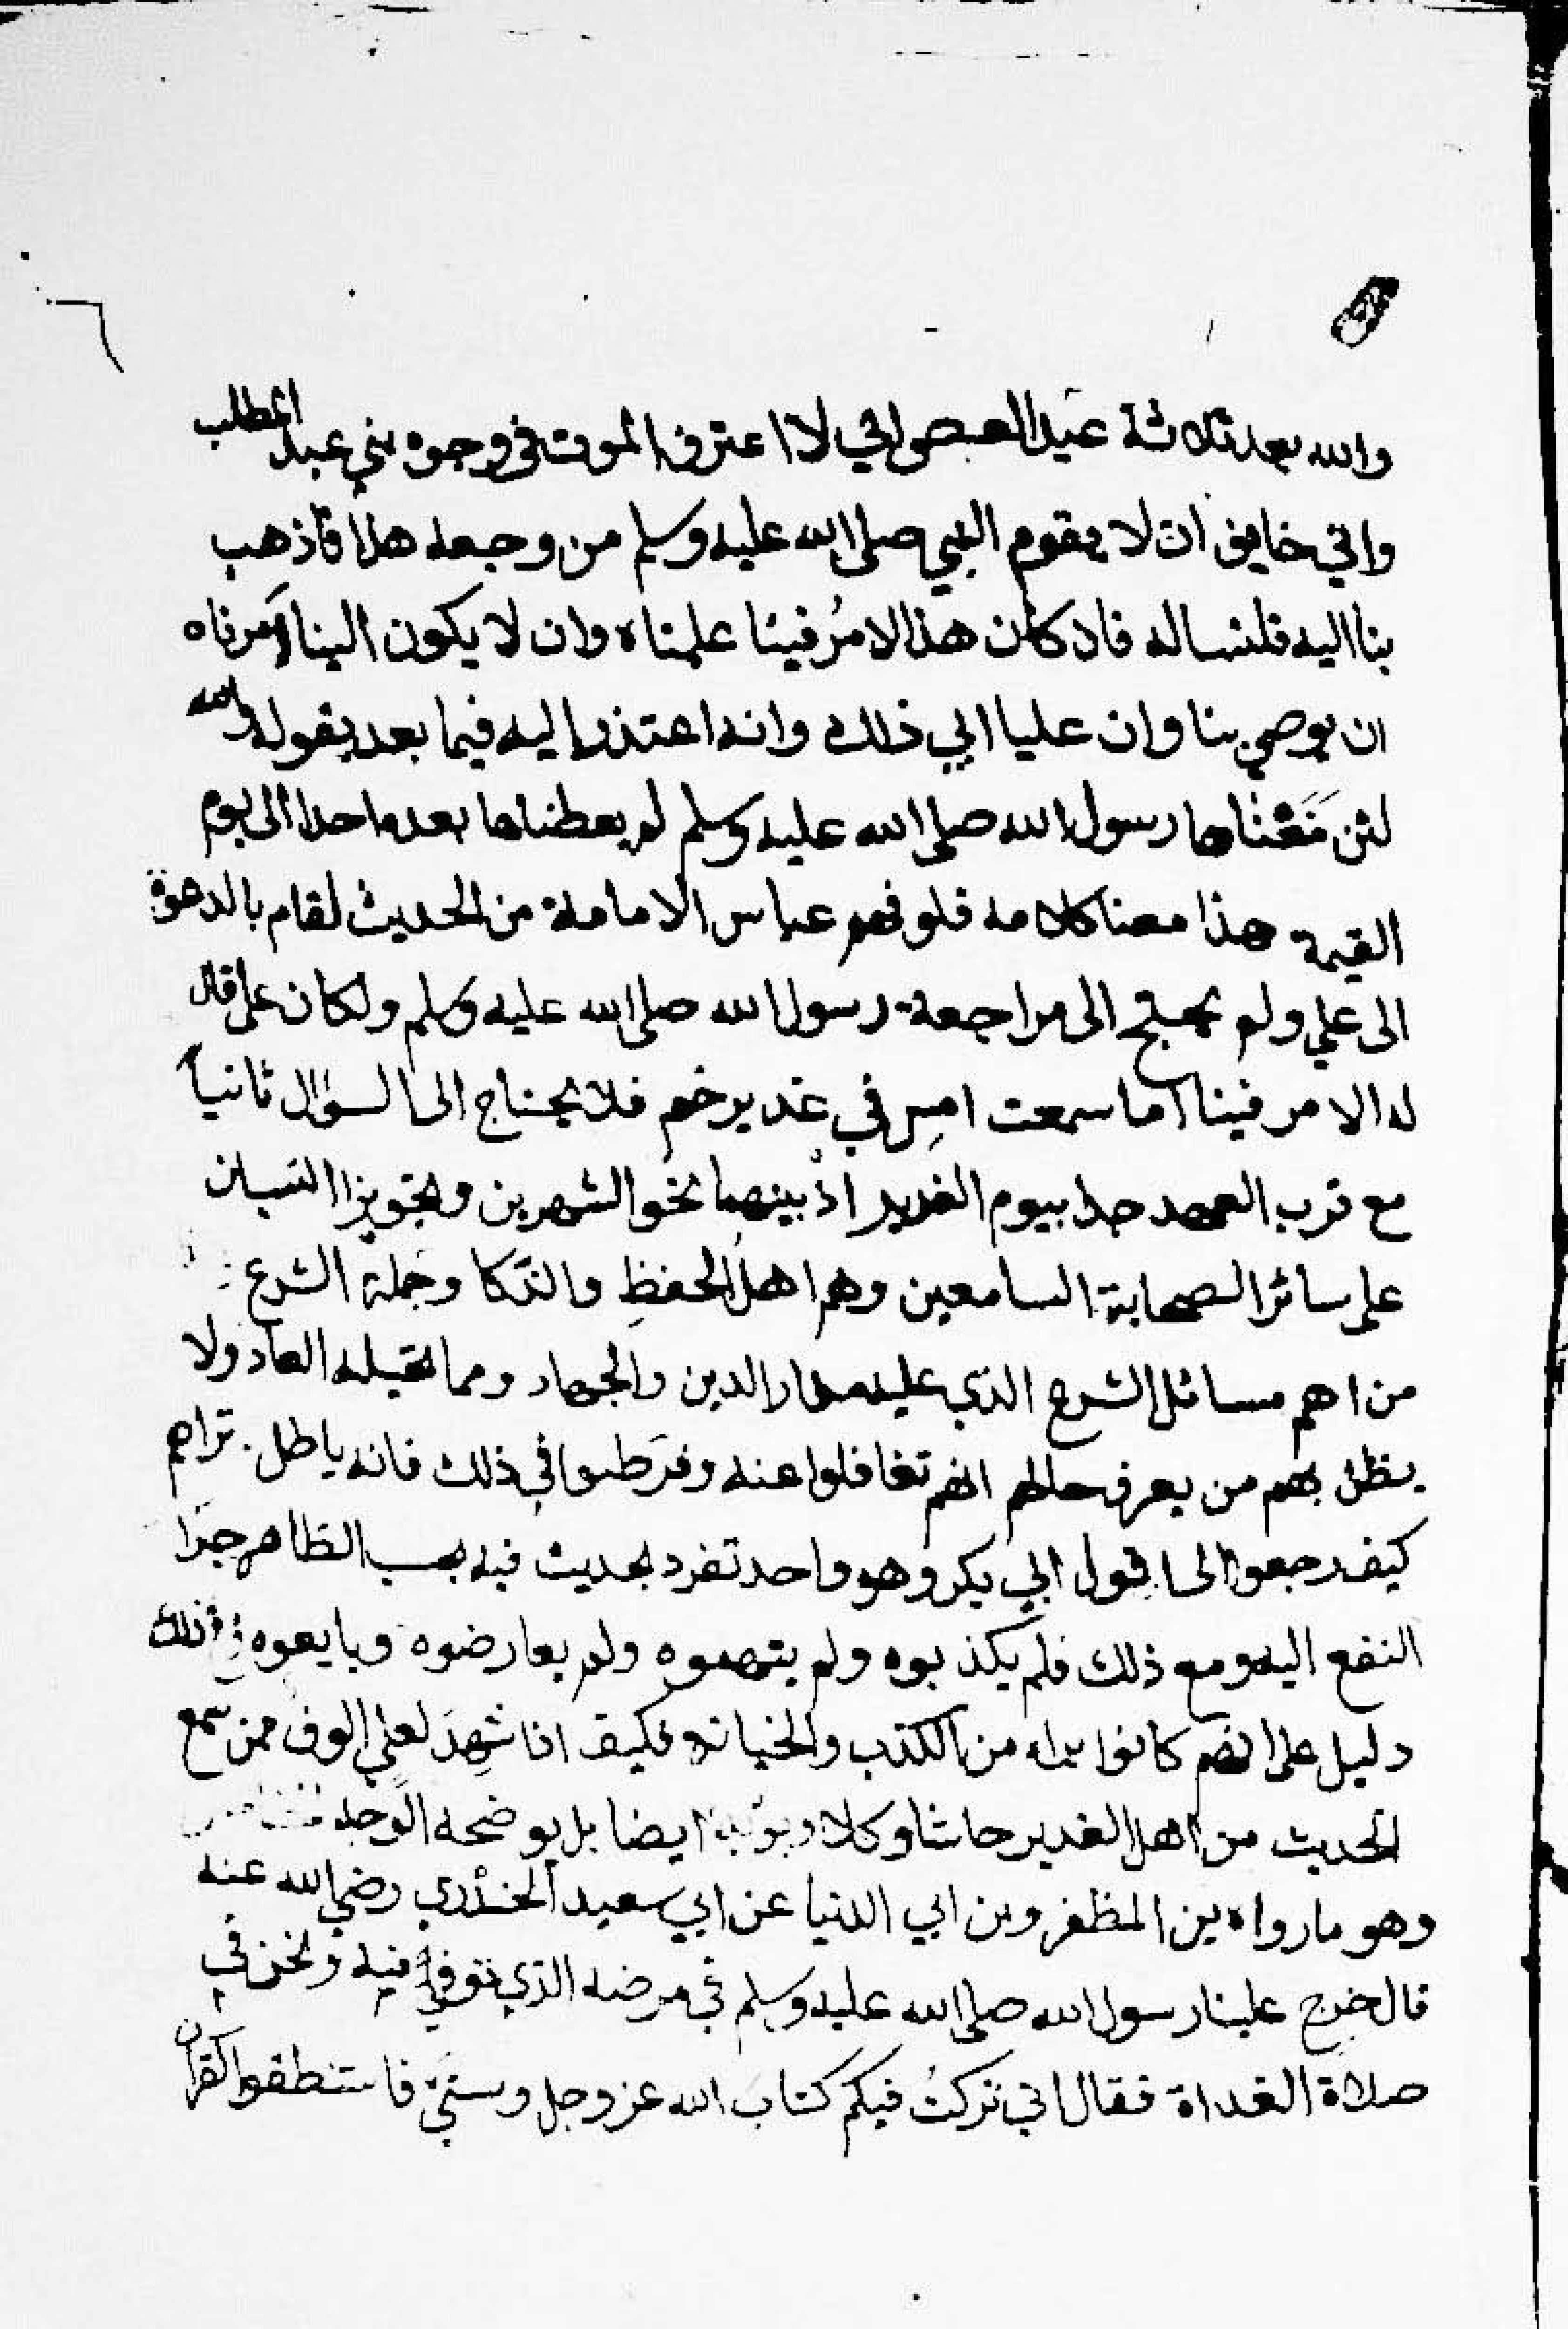 والله بعد ثلاثة عبد العصى اني لا اعترف الموت في وجوه بني عبد المطلب
واني خايف ان لا يقوم النبي صلى الله عليه وسلم من وجعه هذا فاذهب
بنا اليه فلنساله فاد كان هذا الامرُ فينا علمناه وان لا يكون الينا أمرناه
ان يوصي بنا وان عليا ابي ذلك وانه اعتذر اليه فيما بعد بقوله والله
لئن مَنَعْناها رسول الله صلى الله عليه وسلم لم يعطناها بعده احدا الى يوم
القيمة هذا معنا كلامه فلو فهم عباس الامامة من الحديث لقام بالدعوة
الى علي ولم يحتج الى مراجعة رسول الله صلى الله عليه وسلم ولكان على قال
له الامر فينا اما سمعت امسِ في غدير خم فلا يحتاج الى السؤال ثانياً
مع قرب العهد جدا بيوم الغدير اذ بينهما نحو الشهرين وتجويز النسيان
على سائر الصحابة السامعين وهم اهل الحفظِ والذكا وحَملة الشرع
من اهم مسائل الشرع الذي عليه مدار الدين والجهاد ومما تحيله العاد ولا
يظن بهم من يعرف حالهم انهم تغافلوا عنه وفرَطوا في ذلك فانه باطل. تراهم
كيف رجعوا الى قول ابي بكر وهو واحد تفرد بحديث فيه بحسب الظاهر جَرا
النفع اليه ومع ذلك فلم يكذبوه ولم يتهموه ولم يعارضوه وبايعوه في ذلك
دليل على انهم كانوا براء من الكذب والخيانه فكيف اذا شهِدَ لعلي الوف ممن سمع
الحديث من اهل الغدير حاشا وكلا ايضا بل يوضحه الوجه
وهو ما رواه بن المظفر وبن ابي الدنيا عن ابي سعيد الخدْري رضي الله عنه
قال خرج علينا رسول الله صلى الله عليه وسلم في مرضه الذي توفي فيه ونحن في
صلاة الغداة فقال اني تركتُ فيكم كتاب الله عز وجل وسنتي فاستنطقوا القران